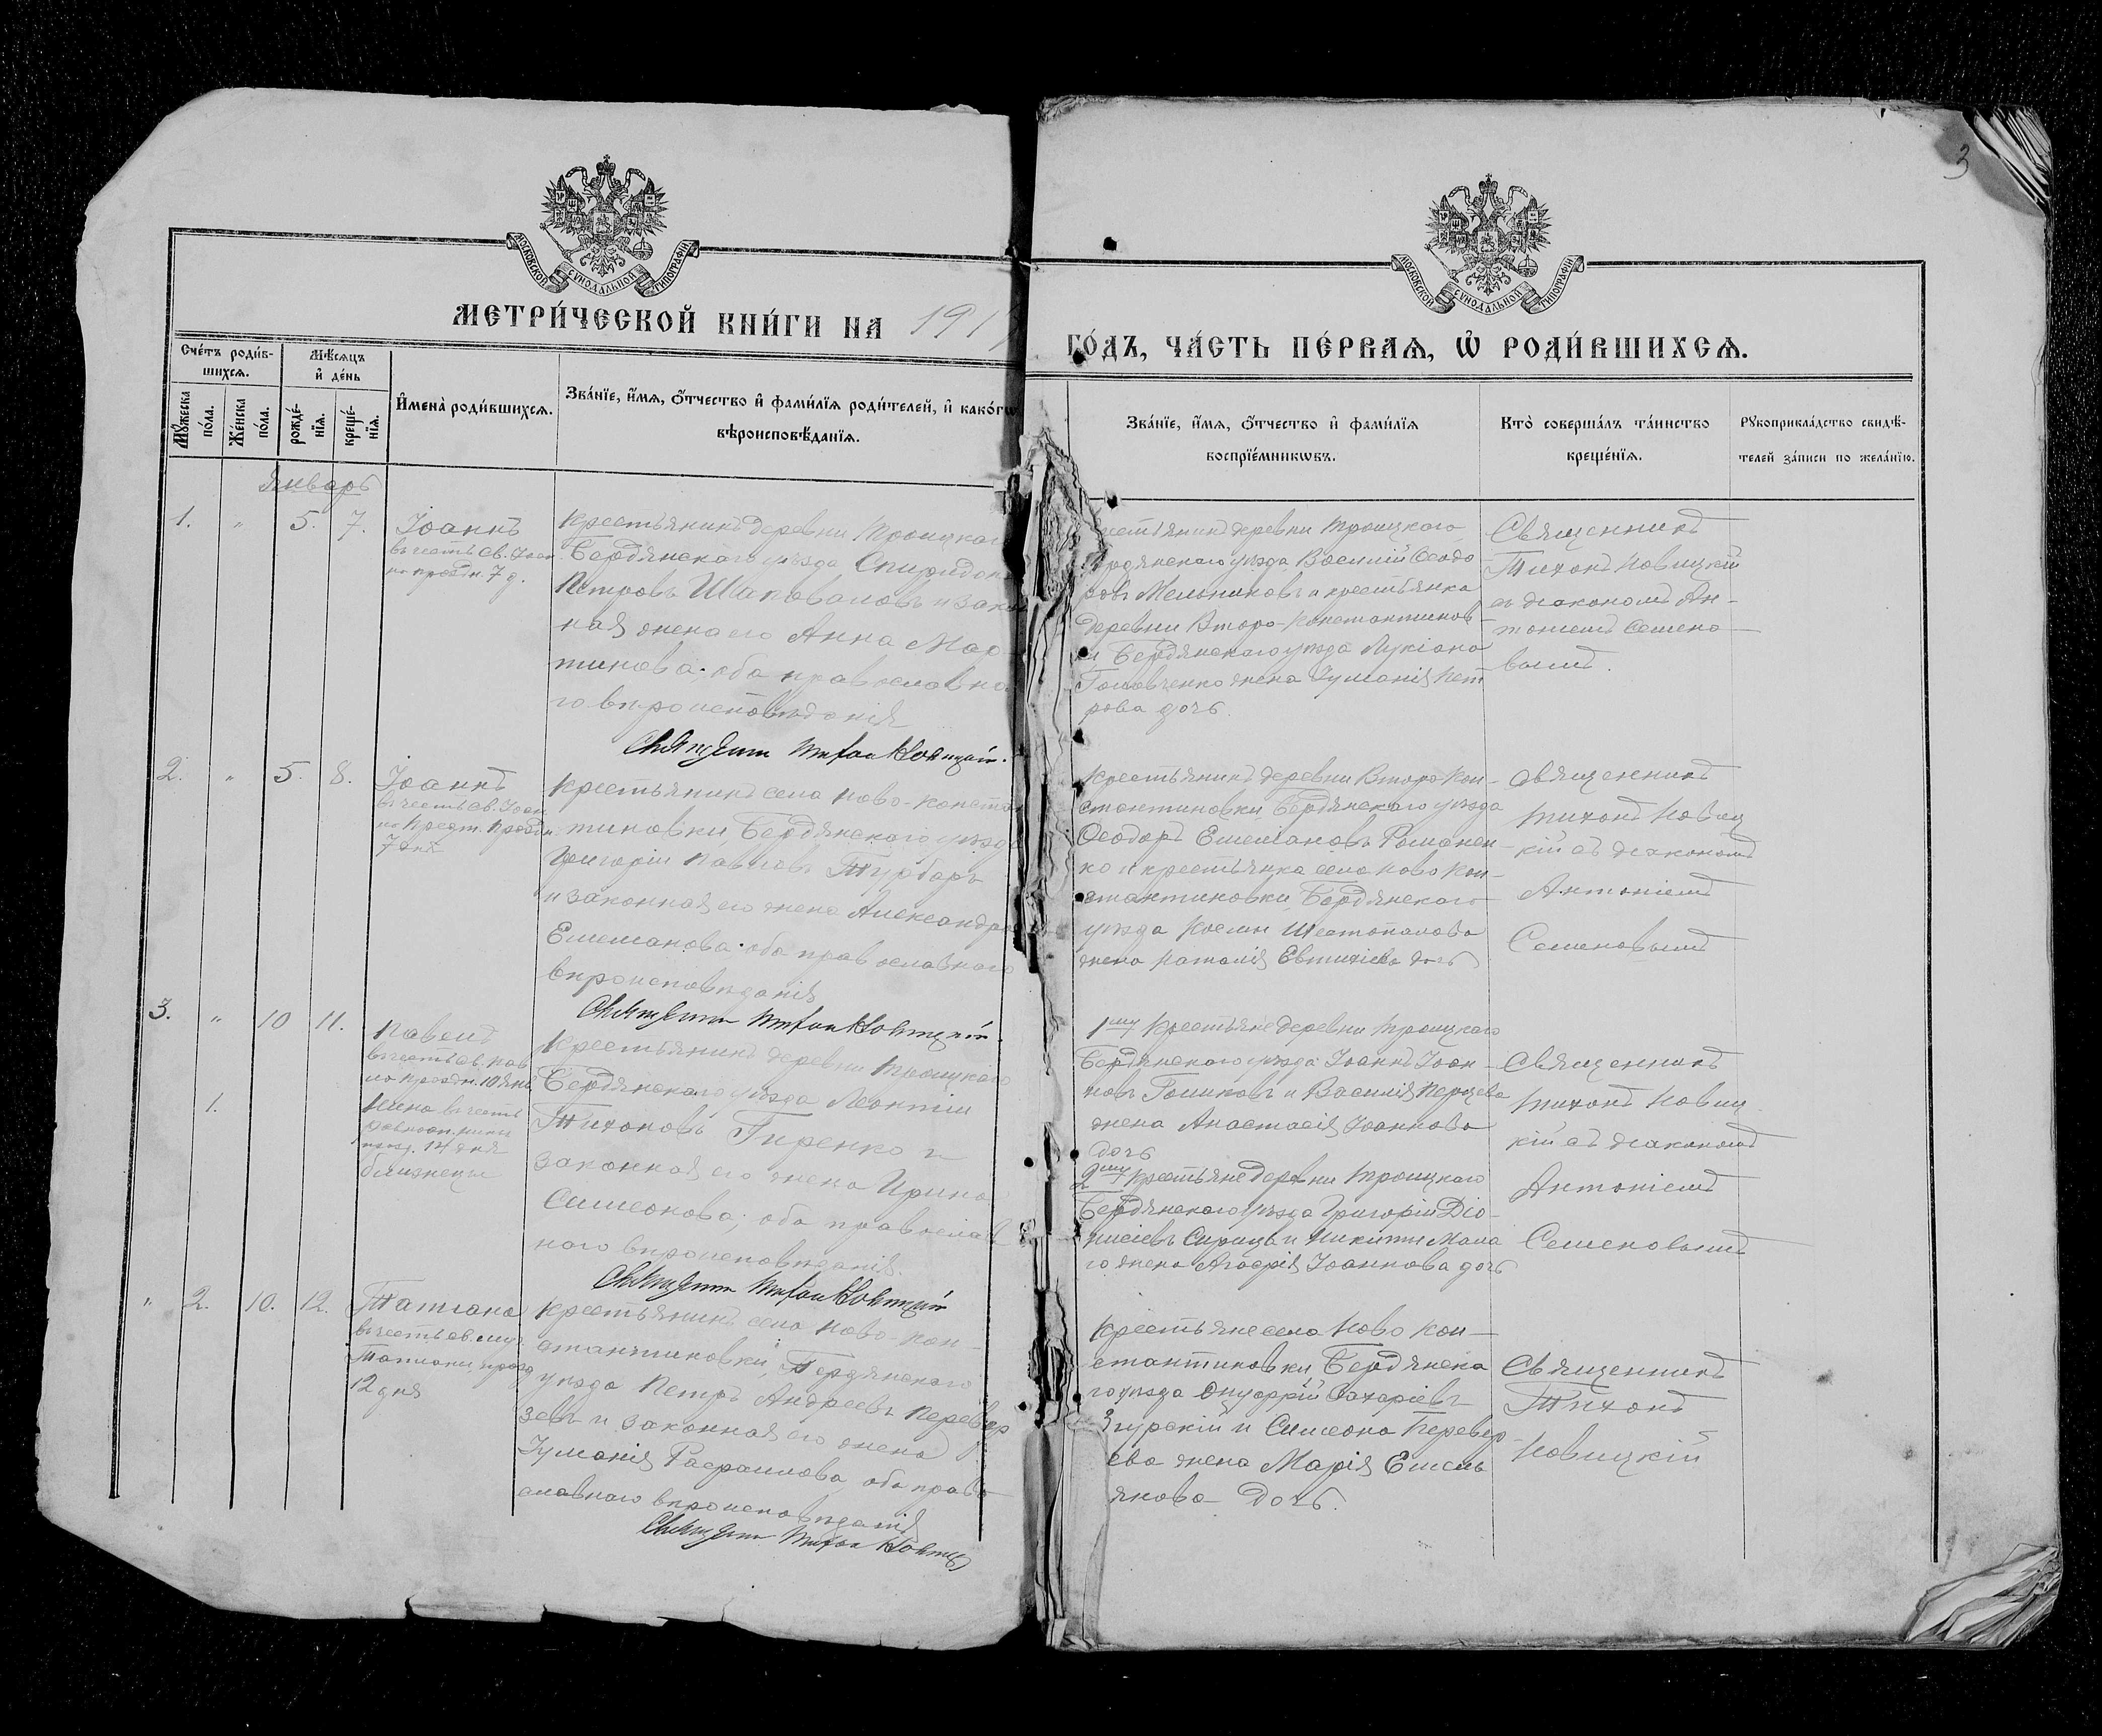 3
МОСКОВСКОЙ СѴНОДАЛЬНОЙ ТИПОГРАФІИ
МОСКОВСКОЙ СѴНОДАЛЬНОЙ ТИПОГРАФІИ
МЕТРИ́ЧЕСКОЙ КНИ́ГИ НА 1917
ГО́ДЪ, ЧА́СТЬ ПЕ́РВАѦ, Ѡ҆ РОДИ́ВШИХСѦ.
Сче́тъ роди́в-
шихсѧ.
Мꙋ́жеска по́ла.
Же́нска по́ла.
Мѣ́сѧцъ
и҆ де́нь
рожде́-
нїѧ.
креще́-
нїѧ.
И҆мена̀ роди́вшихсѧ.
Зва́нїе, и҆́мѧ, ѻ҆́тчество и҆ фами́лїѧ роди́телей, и҆ како́гѡ
вѣроисповѣ́данїѧ.
Зва́нїе, и҆́мѧ, ѻ҆́тчество и҆ фами́лїѧ
воспрїе́мникѡвъ.
Кто̀ соверша́лъ та́инство
креще́нїѧ.
Рꙋкоприкла́дство свидѣ́-
телей за́писи по жела́нїю.
Январь
1. " 5. 7.
Іоаннъ
въ честь св. Іоан
на праздн. 7 д.
Крестьянинъ деревни Троицкаго
Бердянскаго уѣзда Спиридонъ
Петровъ Шаповаловъ и закон
ная жена его Анна Мар
тинова; оба православна
го вѣроисповѣданія
Священникъ Тихонъ Новицкій.
деревни Троицкаго
уѣзда Василій Ѳеодо
ровъ Мельниковъ и крестьянка
деревни Второ-Константинов-
ки Бердянскаго уѣзда Лукіана
Головченко жена Іуліанія Пет
рова дочь.
Священникъ
Тихонъ Новицкій
съ діакономъ Ан-
тоніемъ Семено-
вымъ.
2. " 5. 8.
Іоаннъ
въ честь св. Іоан
на Крест. праздн.
7 дня
Крестьянинъ села Ново-Конста
тиновки, Бердянскаго уѣзда
Григорій Павловъ Турбаръ
и законная его жена Александра
Емеліанова; оба православнаго
вѣроисповѣданія
Священникъ Тихонъ Новицкій.
Крестьянинъ деревни Второ Кон-
стантиновки, Бердянскаго уѣзда
Ѳеодоръ Емеліановъ Романен-
ко и крестьянка села Ново Кон-
стантиновки, Бердянскаго
уѣзда Космы Шестопалова
жена Наталія Евтихіева дочь
Священникъ
Тихонъ Новиц
кій съ діакономъ
Антоніемъ
Семеновымъ
3. " 10 11.
Павелъ
въ честь св. Пав
ла праздн. 10 дня
1.
Нина въ честь
равноап. Нины
празд. 14 дня
близнецы
Крестьянинъ деревни Троицкаго
Бердянскаго уѣзда Леонтій
Тихоновъ Гиренко и
законная его жена Ирина
Симеонова; оба православ
наго вѣроисповѣданія.
Священникъ Тихонъ Новицкій
Крестьяне деревни Троицкаго
Бердянскаго уѣзда Іоаннъ Іоан-
новъ Голиковъ и Василія
жена Анастасія Іоаннова
дочь
Крестьяне деревни Троицкаго
Бердянскаго уѣзда Григорій Діо-
нисіевъ и Никиты
жена Агафія Іоаннова дочь
Священникъ
Тихонъ Новиц
кій съ діакономъ
Антоніемъ
Семеновымъ
" 2. 10. 12.
Татіана
въ честь св. муч.
Татіаны празд
12 дня
Крестьянинъ села Ново-Кон-
стантиновки, Бердянскаго
уѣзда Петръ Андреевъ Перевер
зевъ и законная его жена
Іуліанія Рафаилова, оба право
славнаго вѣроисповѣданія
Священникъ Тихонъ Новиц
Крестьяне села Ново Кон-
стантиновки, Бердянска
го уѣзда Онуфрій Захаріевъ
Згурскій и Симеона Перевер
ева жена Марія Емель
янова дочь.
Священникъ
Тихонъ
Новицкій